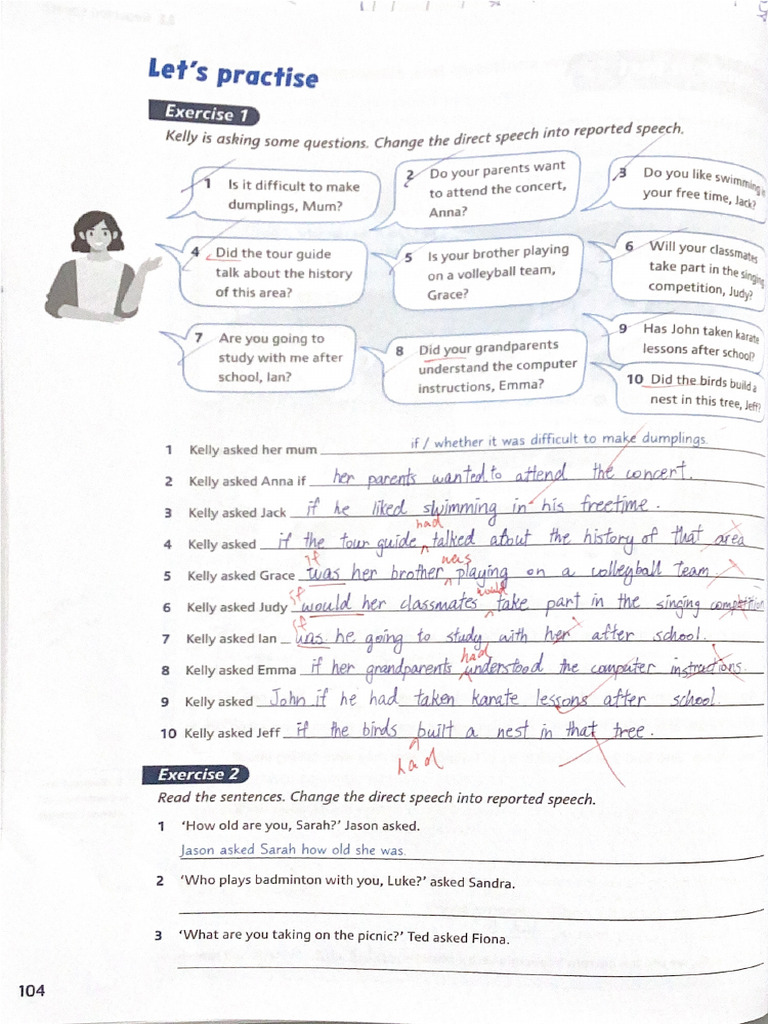 Let's practise
Exercise 1
Kelly is asking some questions. Change the direct speech into reported speech.
1 Is it difficult to make
dumplings, Mum?
2 Do your parents want
to attend the concert,
Anna?
3 Do you like swimming in
your free time, Jack?
4 Did the tour guide
talk about the history
of this area?
5 Is your brother playing
on a volleyball team,
Grace?
6 Will your classmates
take part in the singing
competition, Judy?
7 Are you going to
study with me after
school, Ian?
8 Did your grandparents
understand the computer
instructions, Emma?
9 Has John taken karate
lessons after school?
10 Did the birds build a
nest in this tree, Jeff?
1 Kelly asked her mum if / whether it was difficult to make dumplings.
2 Kelly asked Anna if her parents wanted to attend the concert.
3 Kelly asked Jack if he liked swimming in his freetime.
had
4 Kelly asked if the tour guide talked about the history of that area
if was
5 Kelly asked Grace was her brother playing on a volleyball team
if would
6 Kelly asked Judy would her classmates take part in the singing competition
if
7 Kelly asked Ian was he going to study with her after school.
had
8 Kelly asked Emma if her grandparents understood the computer instructions.
9 Kelly asked John if he had taken karate lessons after school.
10 Kelly asked Jeff if the birds built a nest in that tree.
had
Exercise 2
Read the sentences. Change the direct speech into reported speech.
1 'How old are you, Sarah?' Jason asked.
Jason asked Sarah how old she was.
2 'Who plays badminton with you, Luke?' asked Sandra.
3 'What are you taking on the picnic?' Ted asked Fiona.
104